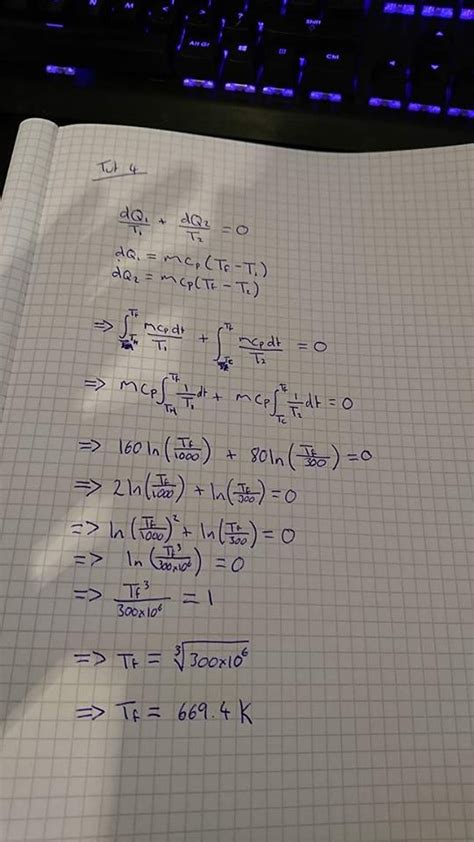 Shift
Alt Gr
Ctrl
Tut 4
dQ₁/T₁ + dQ₂/T₂ = 0
dQ₁ = mcₚ(T_f - T₁)
dQ₂ = mcₚ(T_f - T₂)
⇒ ∫_{T_H}^{T_f} mcₚdt/T₁ + ∫_{T_C}^{T_f} mcₚdt/T₂ = 0
⇒ mcₚ∫_{T_H}^{T_f} 1/T₁ dt + mcₚ∫_{T_C}^{T_f} 1/T₂ dt = 0
⇒ 160ln(T_f/1000) + 80ln(T_f/300) = 0
⇒ 2ln(T_f/1000) + ln(T_f/300) = 0
⇒ ln(T_f/1000)² + ln(T_f/300) = 0
⇒ ln(T_f³/300×10⁶) = 0
⇒ T_f³/300×10⁶ = 1
⇒ T_f = ∛300×10⁶
⇒ T_f = 669.4 K